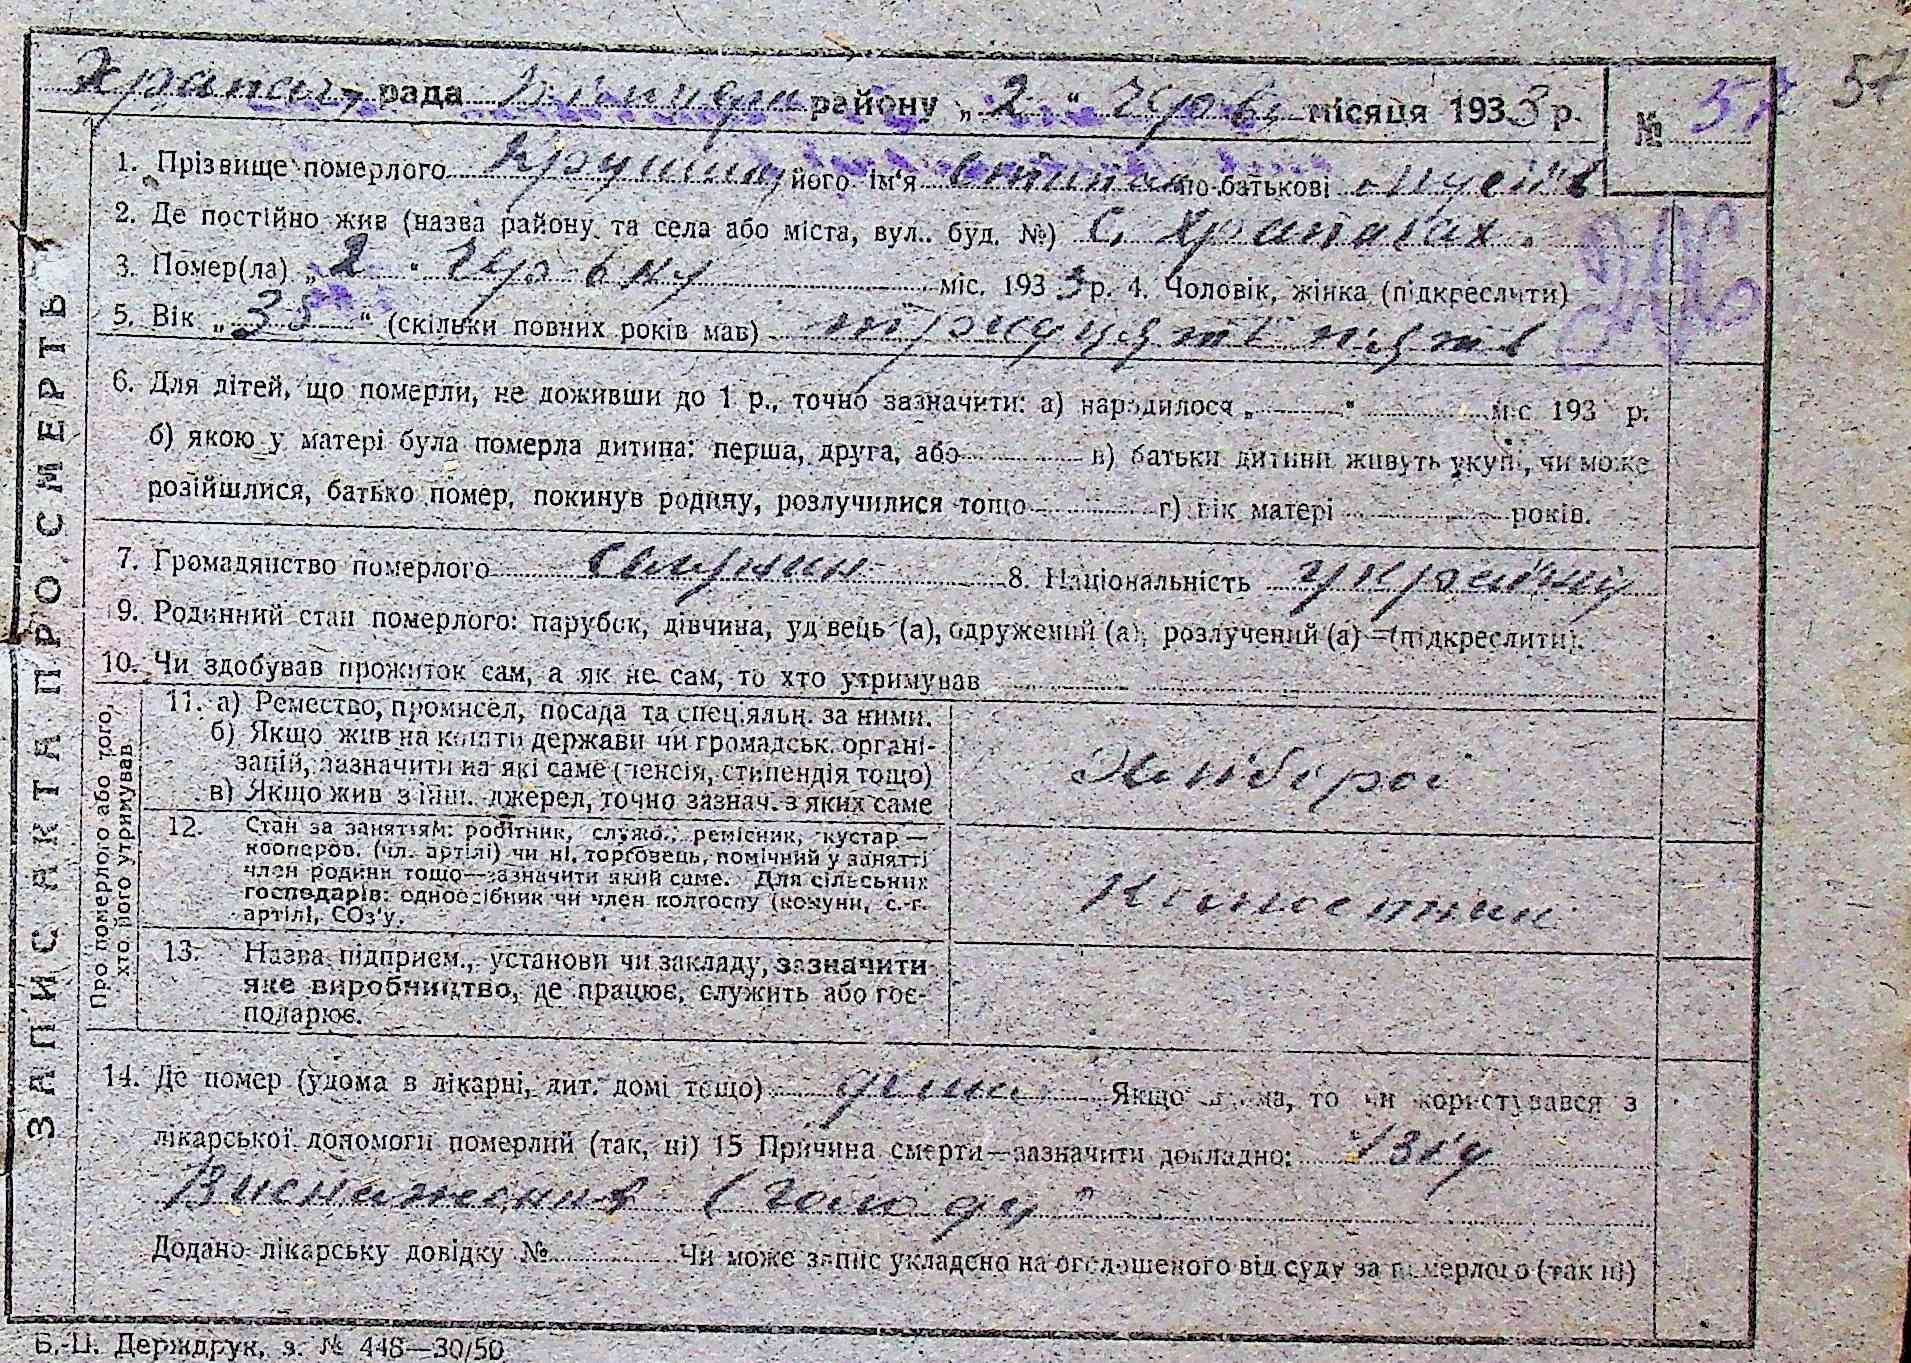 57
рада району „2“ місяця 1933 р. № 57
1. Прізвище померлого його ім'я по-батькові
2. Де постійно жив (назва району та села або міста, вул.. буд. №) С. Храпачах.
3. Помер(ла) „2“ міс. 1933 р. 4. Чоловік, жінка (підкреслити)
5. Вік „35“ (скільки повних років мав) тридцять пять
6. Для дітей, що померли, не доживши до 1 р., точно зазначити: а) народилося „ “ міс 193 р.
б) якою у матері була померла дитина: перша, друга, або в) батьки дитини живуть укупі, чи може
розійшлися, батько помер, покинув родину, розлучилися тощо г) вік матері років.
7. Громадянство померлого 8. Національність
9. Родинний стан померлого: парубок, дівчина, удівець (а), одружений (а), розлучений (а) — (підкреслити).
10. Чи здобував прожиток сам, а як не сам, то хто утримував
11. а) Ремество, промисел, посада та спеціяльн. за ними.
б) Якщо жив на кошти держави чи громадськ. органі-
зацій, зазначити на які саме (пенсія, стипендія тощо)
в) Якщо жив з інш. джерел, точно зазнач. з яких саме
12. Стан за заняттям: робітник, службі, ремісник, кустар —
кооперов. (чл. артілі) чи ні, торговець, помічний у занятті
член родини тощо—зазначити який саме. Для сільських
господарів: одноосібник чи член колгоспу (комуни, с.-г.
артілі, СОЗ'у.
13. Назва підприєм., установи чи закладу, зазначити
яке виробництво, де працює, служить або гос-
подарює.
14. Де помер (удома в лікарні, дит. домі тощо) дома Якщо удома, то чи користувався з
лікарської допомоги померлий (так, ні) 15 Причина смерти—зазначити докладно: Від
Виснаження (голоду"
Додано лікарську довідку № Чи може запис укладено на оголошеного від суду за померлого (так ні)
ЗАПИС АКТА ПРО СМЕРТЬ
Про померлого або того,
хто його утримував
Б.-Ц. Держдрук, з. № 448—30/50